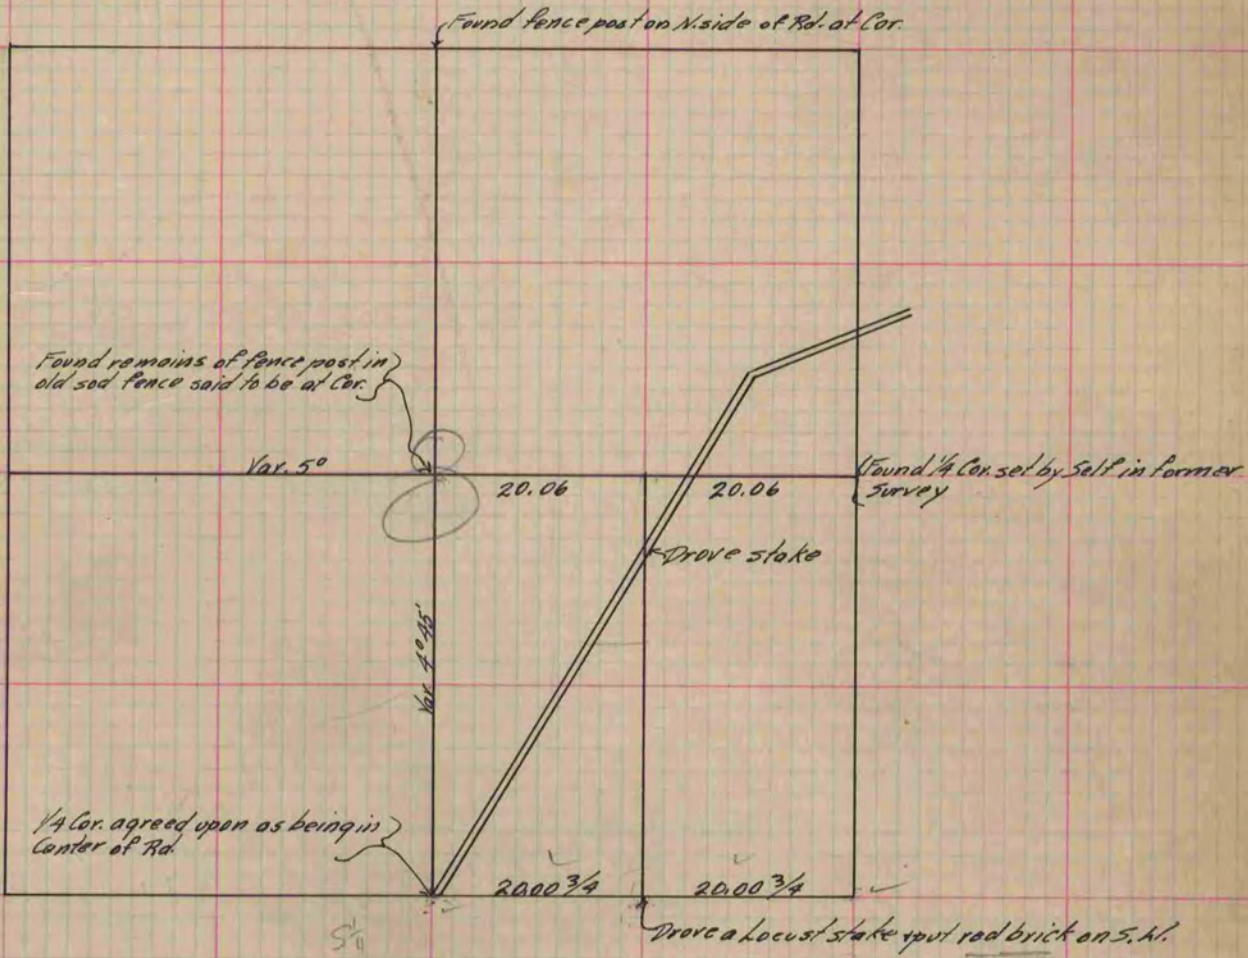 Found fence post on N. side of Rd. at Cor.
Found remains of fence post in
old sod fence said to be at Cor.
Var. 5°
20.06
20.06
Found 1/4 Cor. set by Self in former
Survey
Drove stake
Var. 4° 45'
1/4 Cor. agreed upon as being in
Center of Rd.
20.00 3/4
20.00 3/4
Drove a Locust stake & put red brick on S.W.